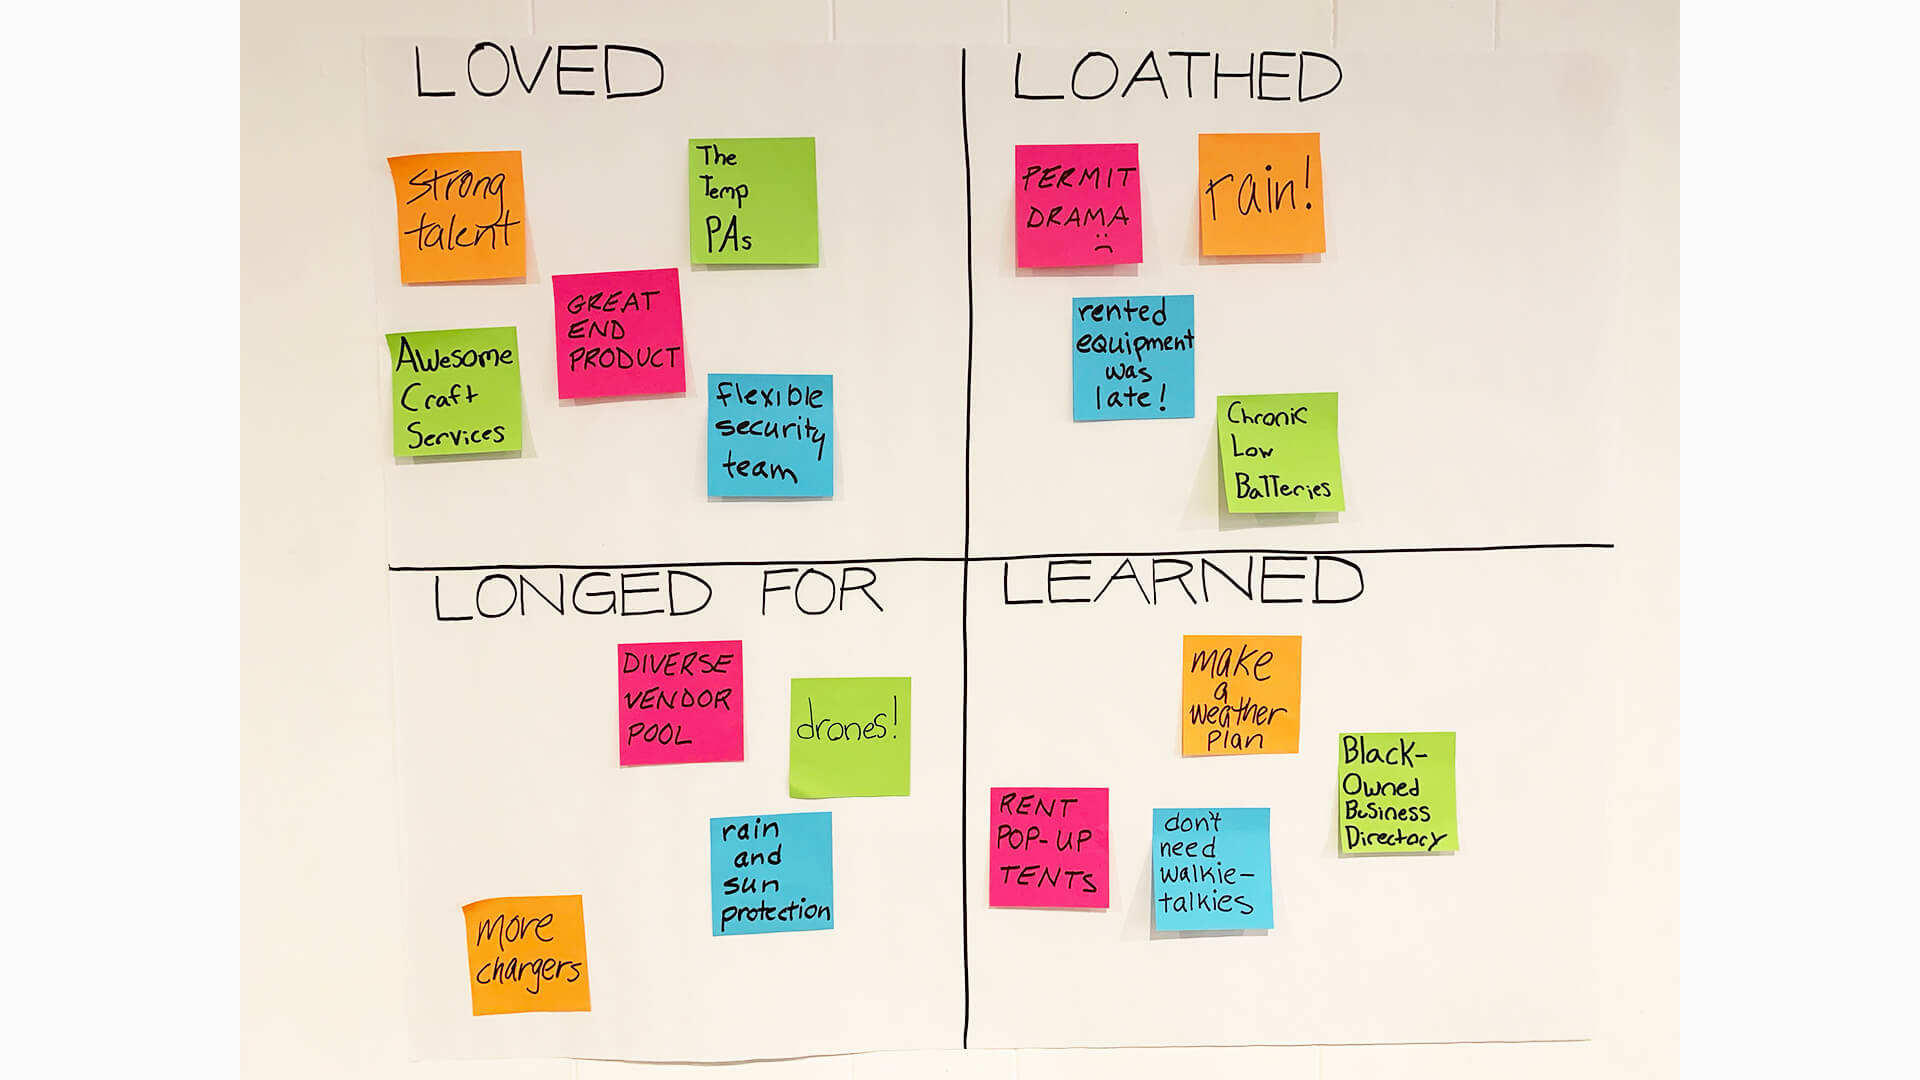 LOVED
strong
talent
The
Temp
PAs
GREAT
END
PRODUCT
Awesome
Craft
Services
flexible
security
team
LOATHED
PERMIT
DRAMA
rain!
rented
equipment
was
late!
Chronic
Low
Batteries
LONGED FOR
DIVERSE
VENDOR
POOL
drones!
rain
and
sun
protection
more
chargers
LEARNED
make
a
weather
plan
Black-
Owned
Business
Directory
RENT
POP-UP
TENTS
don't
need
walkie-
talkies